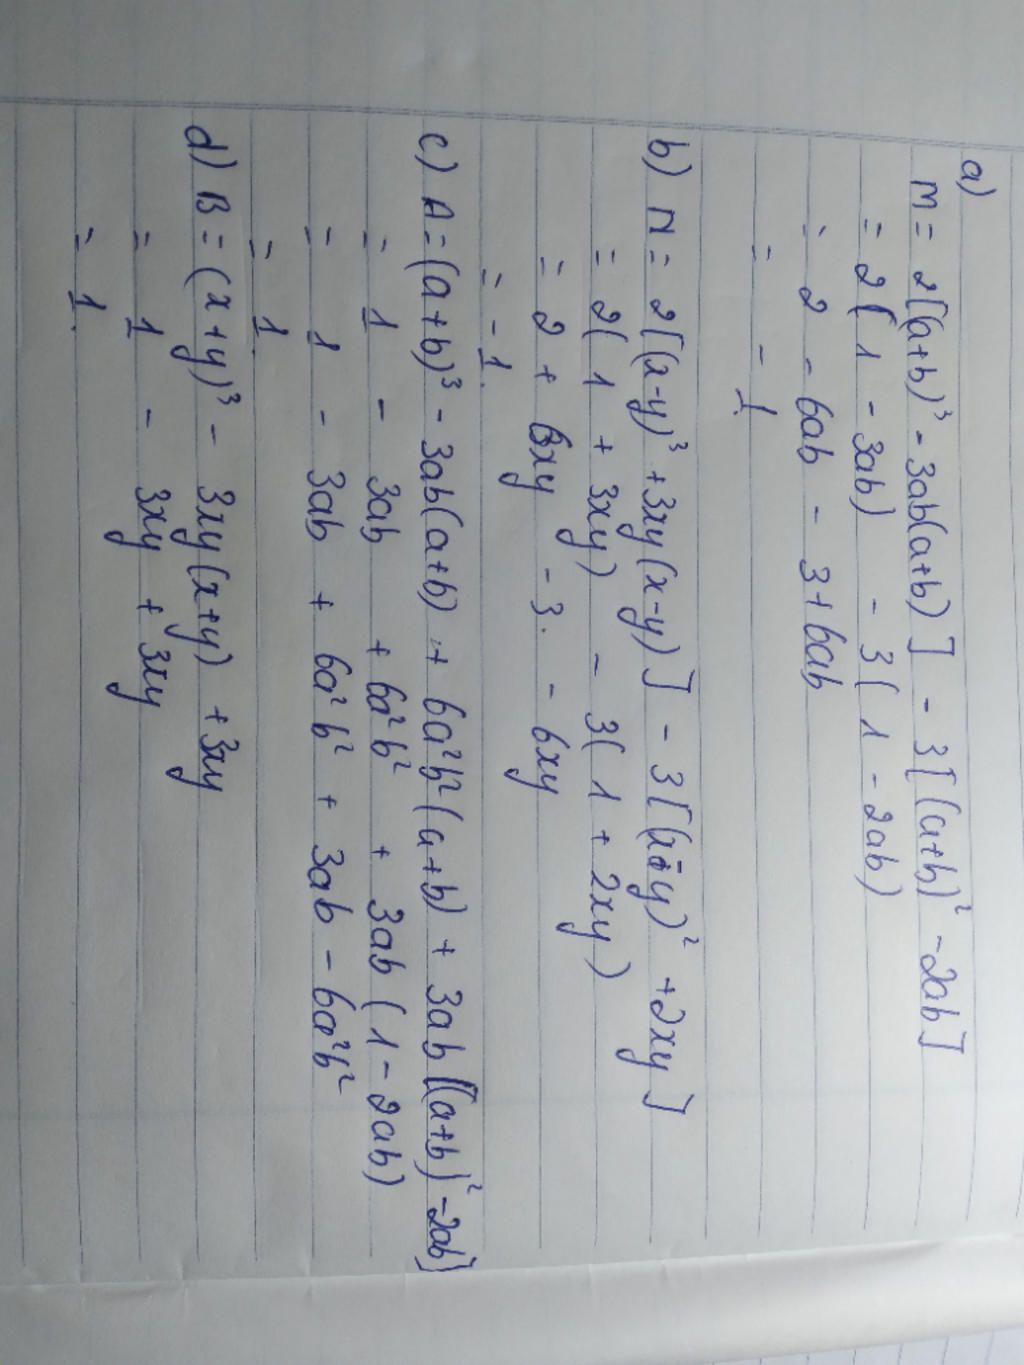 a)
M = 2[(a+b)³ - 3ab(a+b)] - 3[(a+b)² - 2ab]
= 2(1 - 3ab) - 3(1 - 2ab)
= 2 - 6ab - 3 + 6ab
= - 1
b) N = 2[(x-y)³ + 3xy(x-y)] - 3[(x-y)² + 2xy]
= 2(1 + 3xy) - 3(1 + 2xy)
= 2 + 6xy - 3. - 6xy
= - 1.
c) A = (a+b)³ - 3ab(a+b) + 6a²b²(a+b) + 3ab[(a+b)² - 2ab]
= 1 - 3ab + 6a²b² + 3ab(1 - 2ab)
= 1 - 3ab + 6a²b² + 3ab - 6a²b²
= 1.
d) B = (x+y)³ - 3xy(x+y) + 3xy
= 1 - 3xy + 3xy
= 1.